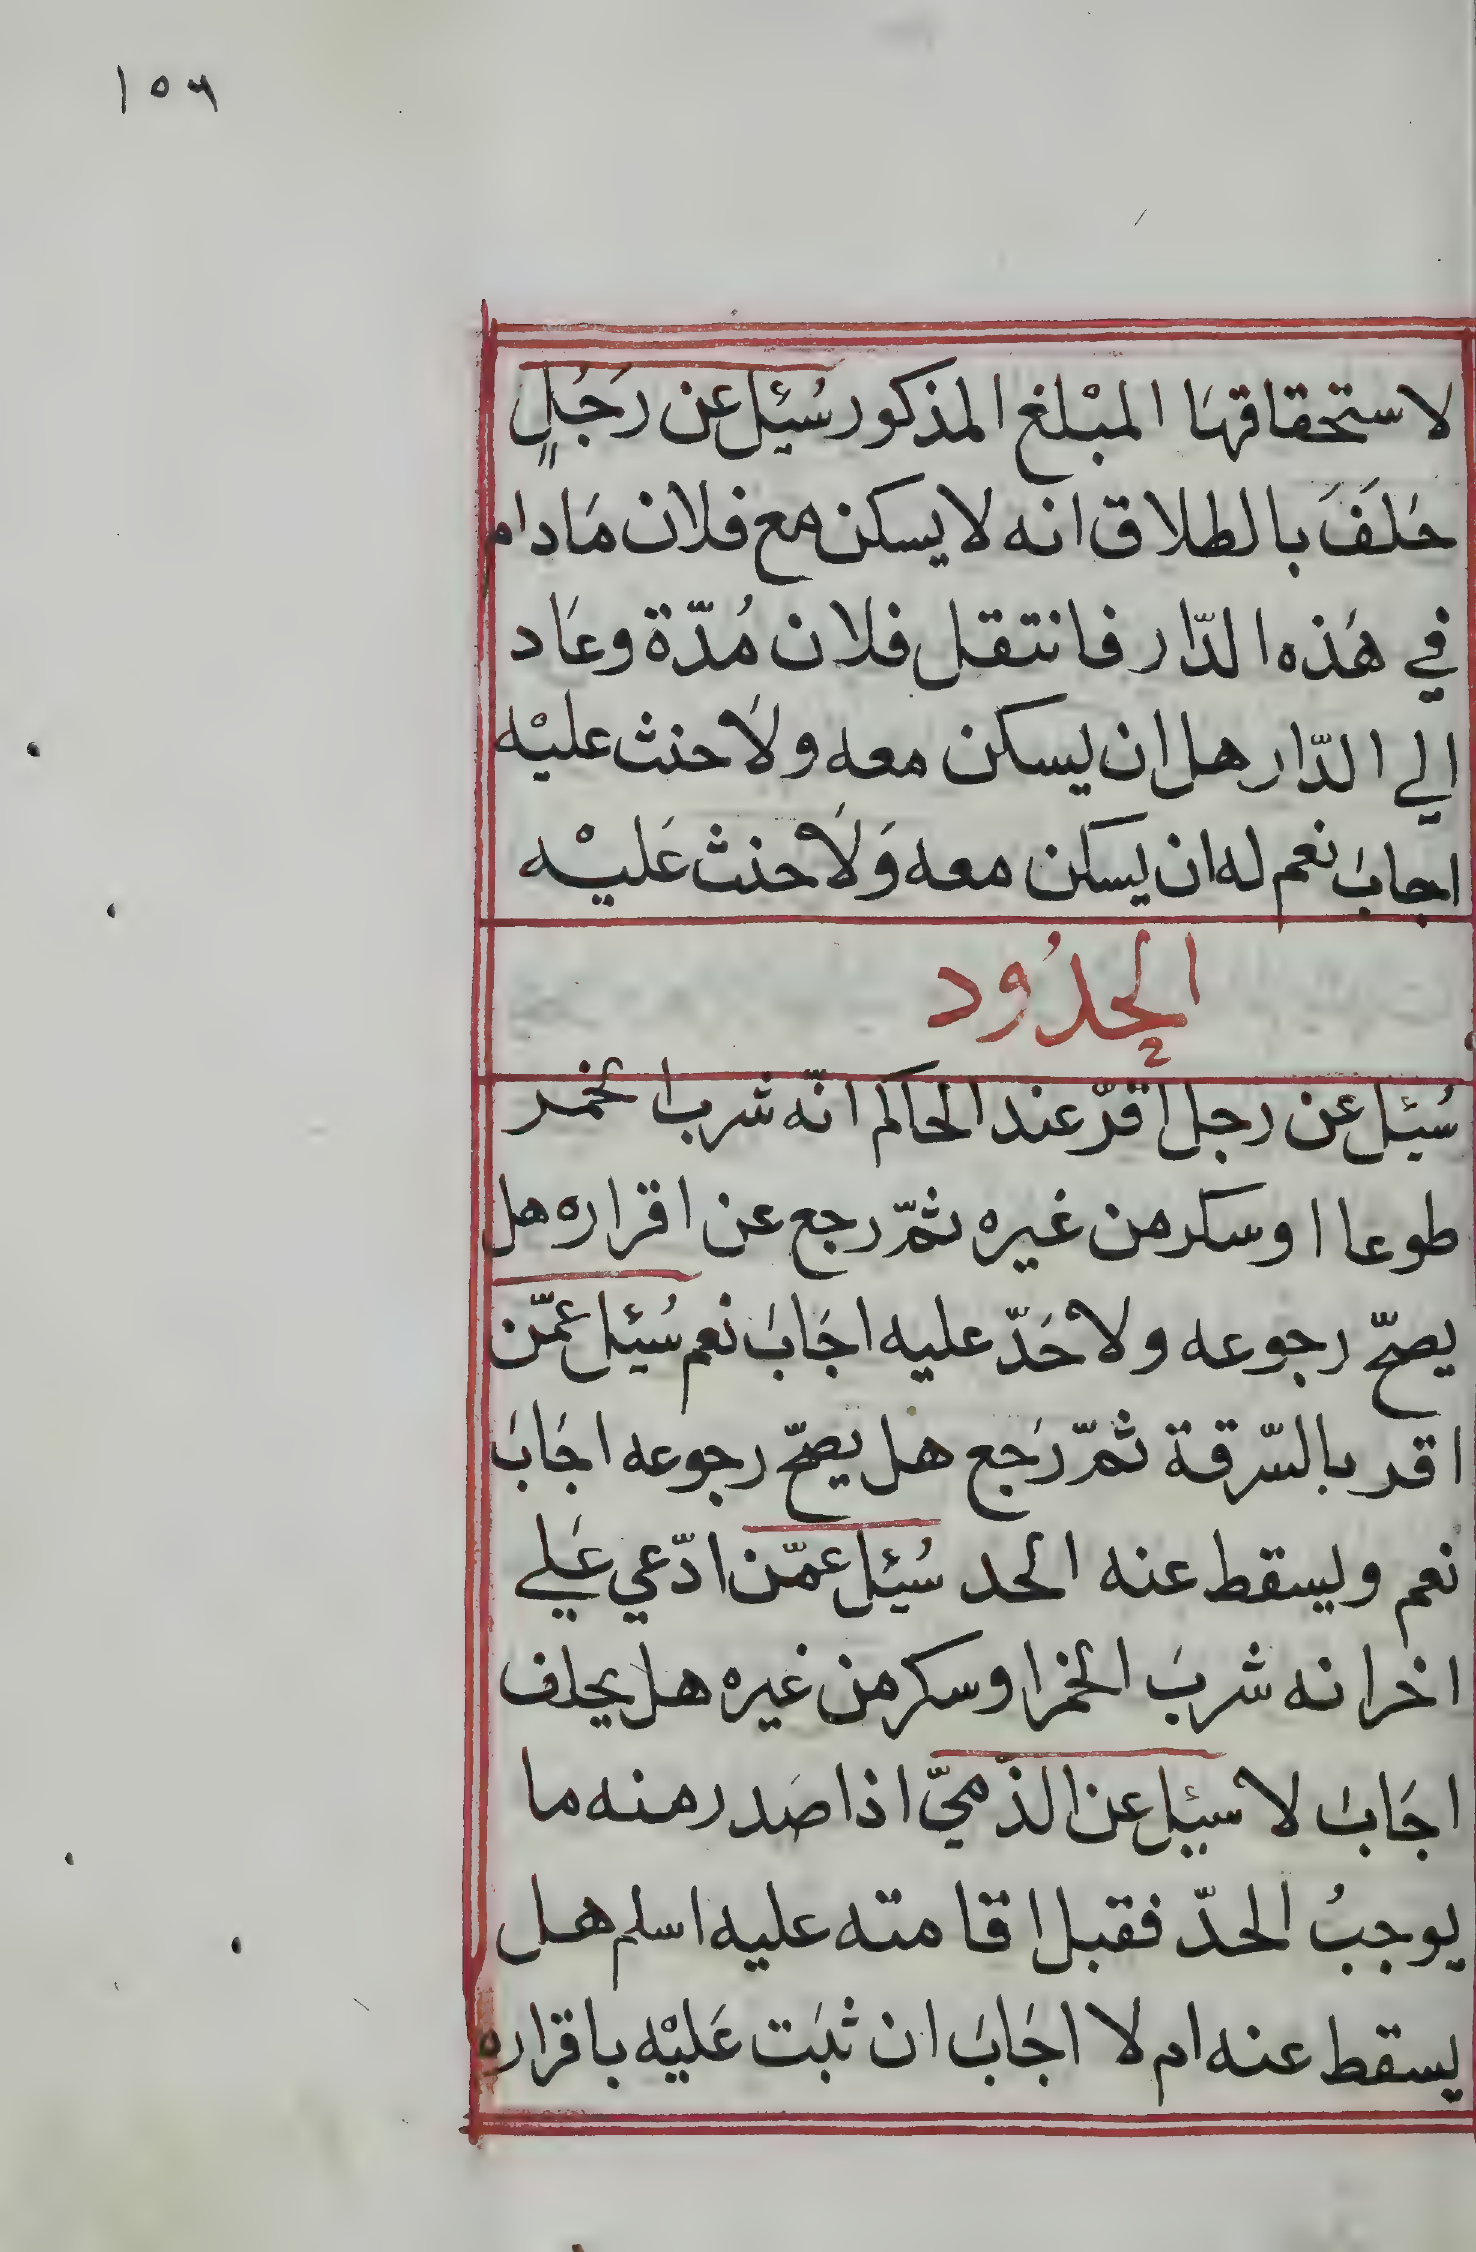 ١٥٦
لاستحقاقهَا المبْلغ المذكور سُئِل عن رَجُلٍ
حَلَفَ بالطلاق انه لا يسكن مع فلان مَادام
في هَذه الدّار فانتقل فلان مُدّة وعَاد
الي الدّار هل ان يسكن معه ولا حنث عليْه
اجابَ نعم له ان يسكن معه وَلا حنث عَليْه
الحدُود
سُئِل عن رجل اقرّ عند الحاكم انّه شرب الخمر
طوعا او سكر من غيره ثمّ رجع عن اقراره هل
يصحّ رجوعه ولا حَدّ عليه اجَابَ نعم سُئِل عمّن
اقر بالسّرقة ثمّ رَجع هل يصحّ رجوعه اجَابَ
نعم ويسقط عنه الحد سُئِل عمّن ادّعي عَلي
اخر انه شربَ الخمر او سكر من غيره هل يحلف
اجَابَ لا سئِل عن الذّميّ اذا صَدر منه ما
يوجبُ الحدّ فقبل اقامته عليه اسلم هل
يسقط عنه ام لا اجَابَ ان ثبَت عَليْه باقراره